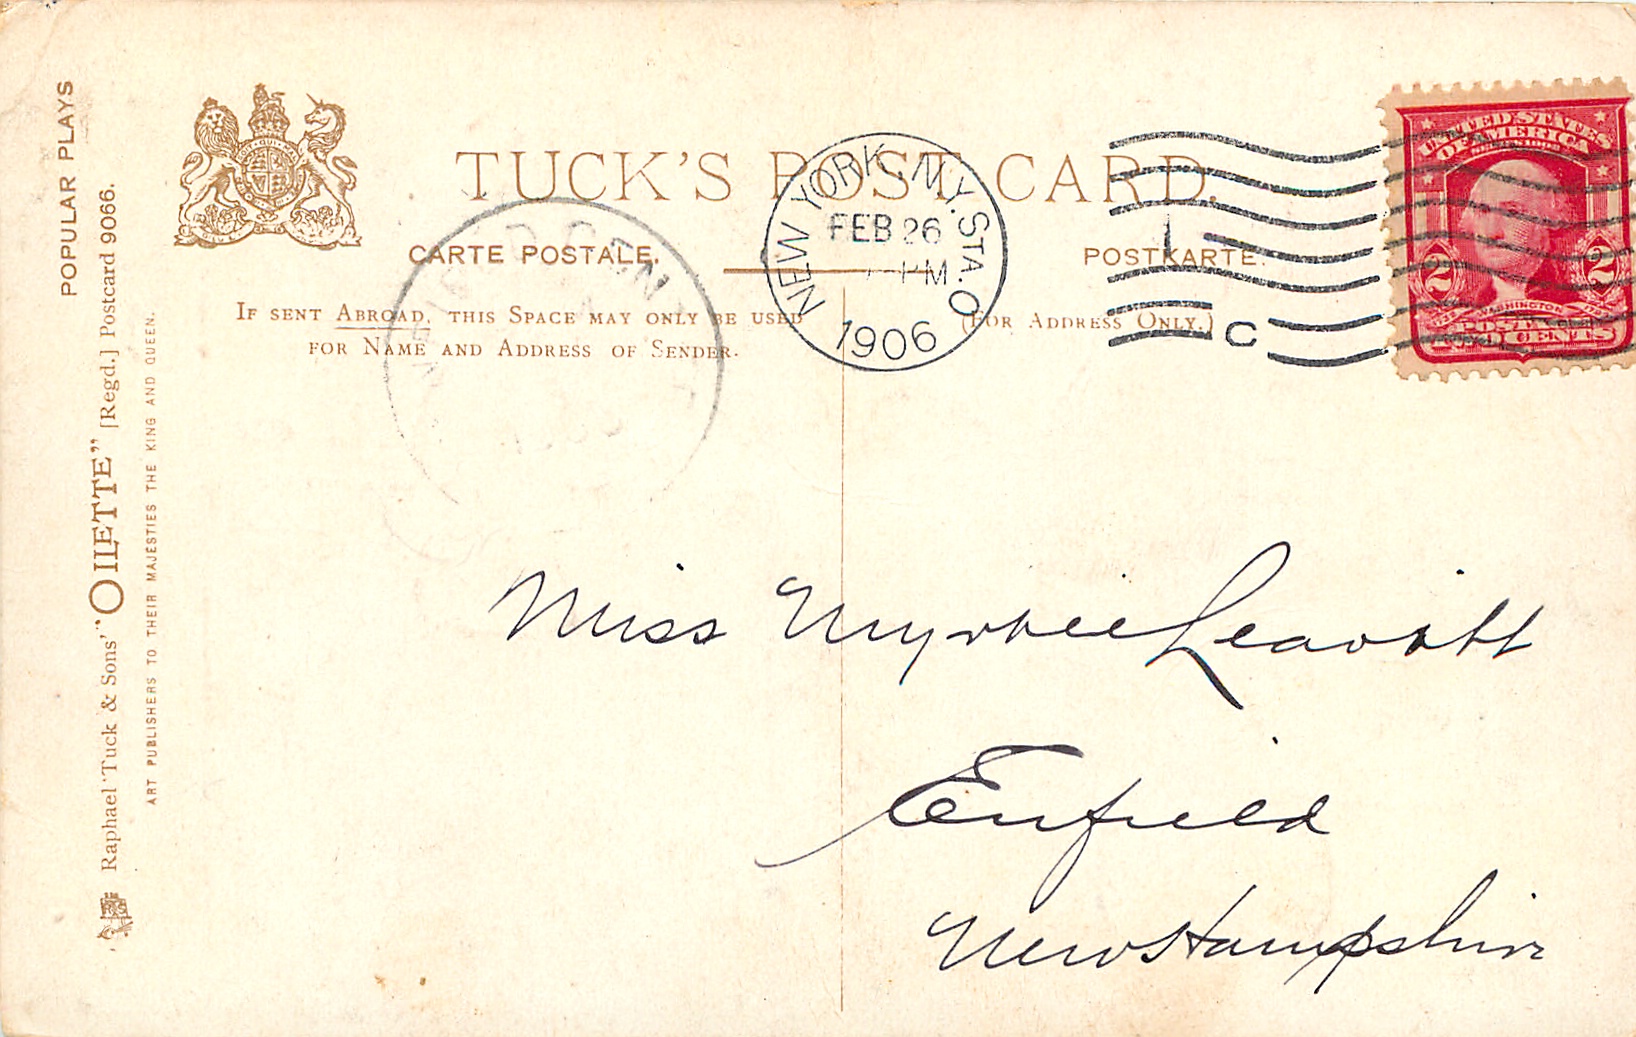 POPULAR PLAYS
Raphael Tuck & Sons' "OILETTE" [Regd.] Postcard 9066.
ART PUBLISHERS TO THEIR MAJESTIES THE KING AND QUEEN.
TUCK'S POST CARD.
CARTE POSTALE.
POSTKARTE.
IF SENT ABROAD, THIS SPACE MAY ONLY BE USED
FOR NAME AND ADDRESS OF SENDER.
(FOR ADDRESS ONLY.)
NEW YORK, N.Y. STA. O
FEB 26
PM
1906
C
UNITED STATES
OF AMERICA
SERIES 1902
2 2
1732 WASHINGTON 1799
POSTAGE
TWO CENTS
Miss Myrtie Leavitt
Enfield
New Hampshire